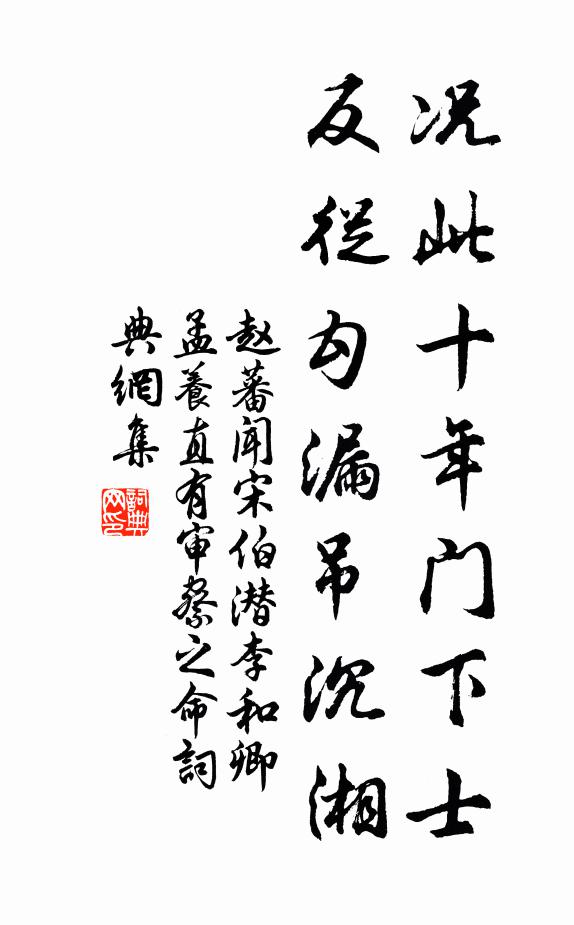 况此十年门下士
反從勾漏吊沉湘
赵蕃闻宋伯潜李和卿
孟養直有审察之命詞
典網集
詞典
网印